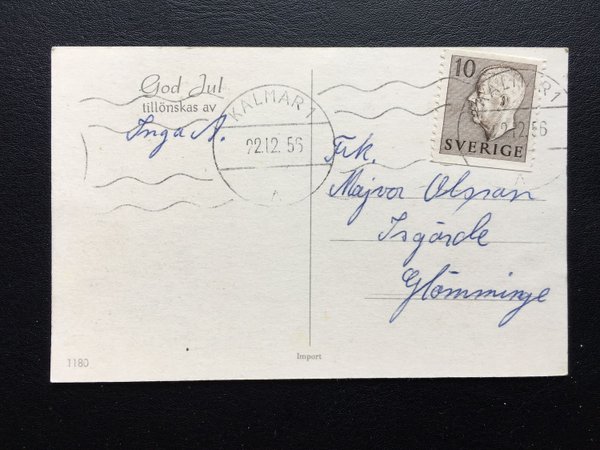 God Jul
tillönskas av
Inga A.
KALMAR 1
22.12.56
10
SVERIGE
KALMAR 1
22.12.56
Frk.
Majvor Olsson
Isgärde
Glömminge
1180
Import